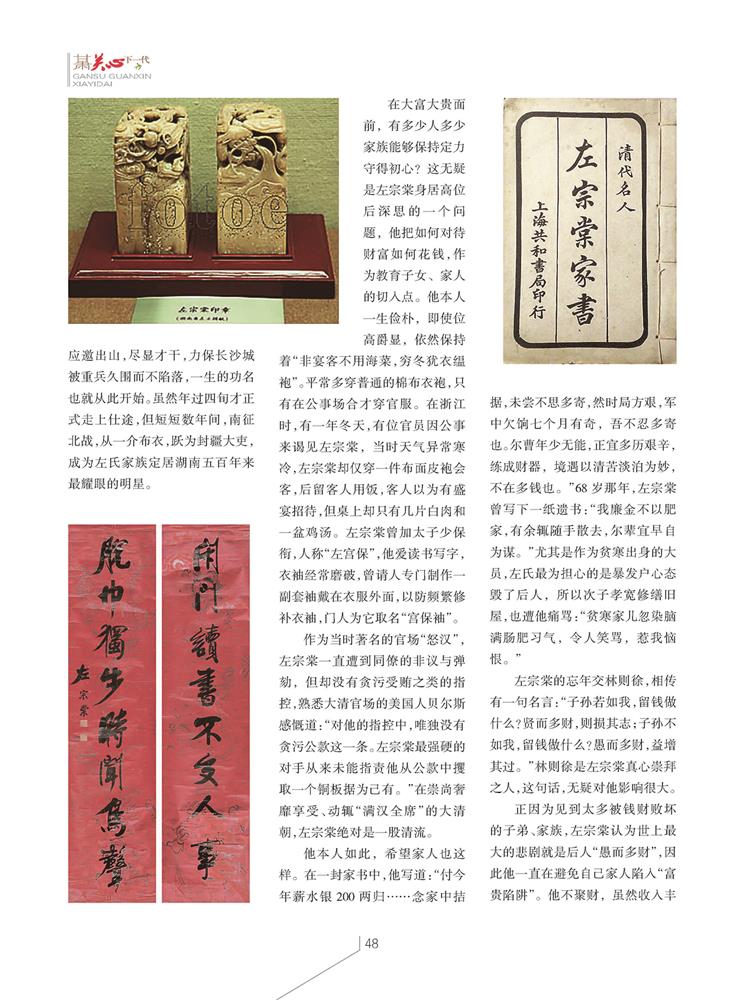 甘肃关心下一代
GANSU GUANXIN
XIAYIDAI
fotoe
左宗棠印章
应邀出山，尽显才干，力保长沙城
被重兵久围而不陷落，一生的功名
也就从此开始。虽然年过四旬才正
式走上仕途，但短短数年间，南征
北战，从一介布衣，跃为封疆大吏，
成为左氏家族定居湖南五百年来
最耀眼的明星。
闭门读书不文人事
脱巾独步时闻鸟声
左宗棠
在大富大贵面
前，有多少人多少
家族能够保持定力
守得初心？这无疑
是左宗棠身居高位
后深思的一个问
题，他把如何对待
财富如何花钱，作
为教育子女、家人
的切入点。他本人
一生俭朴，即使位
高爵显，依然保持
着“非宴客不用海菜，穷冬犹衣缊
袍”。平常多穿普通的棉布衣袍，只
有在公事场合才穿官服。在浙江
时，有一年冬天，有位官员因公事
来谒见左宗棠，当时天气异常寒
冷，左宗棠却仅穿一件布面皮袍会
客，后留客人用饭，客人以为有盛
宴招待，但桌上却只有几片白肉和
一盆鸡汤。左宗棠曾加太子少保
衔，人称“左宫保”，他爱读书写字，
衣袖经常磨破，曾请人专门制作一
副套袖戴在衣服外面，以防频繁修
补衣袖，门人为它取名“宫保袖”。
作为当时著名的官场“怒汉”，
左宗棠一直遭到同僚的非议与弹
劾，但却没有贪污受贿之类的指
控，熟悉大清官场的美国人贝尔斯
感慨道：“对他的指控中，唯独没有
贪污公款这一条。左宗棠最强硬的
对手从来未能指责他从公款中攫
取一个铜板据为己有。”在崇尚奢
靡享受、动辄“满汉全席”的大清
朝，左宗棠绝对是一股清流。
他本人如此，希望家人也这
样。在一封家书中，他写道：“付今
年薪水银 200 两归……念家中拮
清代名人
左宗棠家书
上海共和书局印行
据，未尝不思多寄，然时局方艰，军
中欠饷七个月有奇，吾不忍多寄
也。尔曹年少无能，正宜多历艰辛，
练成财器，境遇以清苦淡泊为妙，
不在多钱也。”68 岁那年，左宗棠
曾写下一纸遗书：“我廉金不以肥
家，有余辄随手散去，尔辈宜早自
为谋。”尤其是作为贫寒出身的大
员，左氏最为担心的是暴发户心态
毁了后人，所以次子孝宽修缮旧
屋，也遭他痛骂：“贫寒家儿忽染脑
满肠肥习气，令人笑骂，惹我恼
恨。”
左宗棠的忘年交林则徐，相传
有一句名言：“子孙若如我，留钱做
什么？贤而多财，则损其志；子孙不
如我，留钱做什么？愚而多财，益增
其过。”林则徐是左宗棠真心崇拜
之人，这句话，无疑对他影响很大。
正因为见到太多被钱财败坏
的子弟、家族，左宗棠认为世上最
大的悲剧就是后人“愚而多财”，因
此他一直在避免自己家人陷入“富
贵陷阱”。他不聚财，虽然收入丰
48